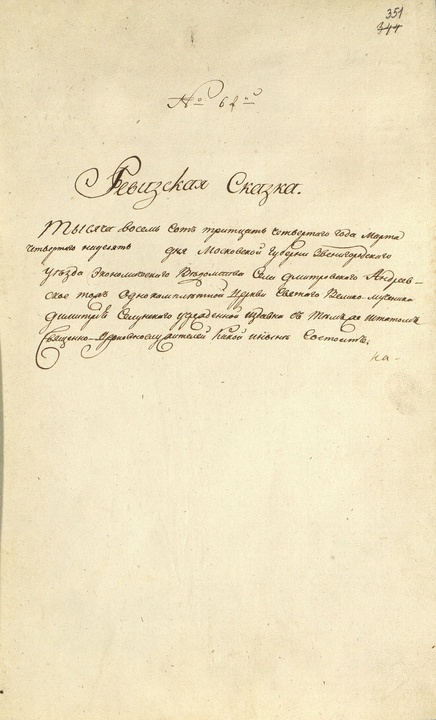 351
344
№ 62й
Ревизская Сказка.
Тысяча восемь сотъ тритцать четвертаго года Марта
дня Московской Губернии Звенигородскаго
уѣзда Экономическаго Вѣдомства Села Дмитровскаго Андреев-
ское тожъ Однокомплектной Церкви Святаго Велико-мученика
Димитрія Селунскаго
Священно-Церковнослужителей какой нынѣ Состоитъ.
на-